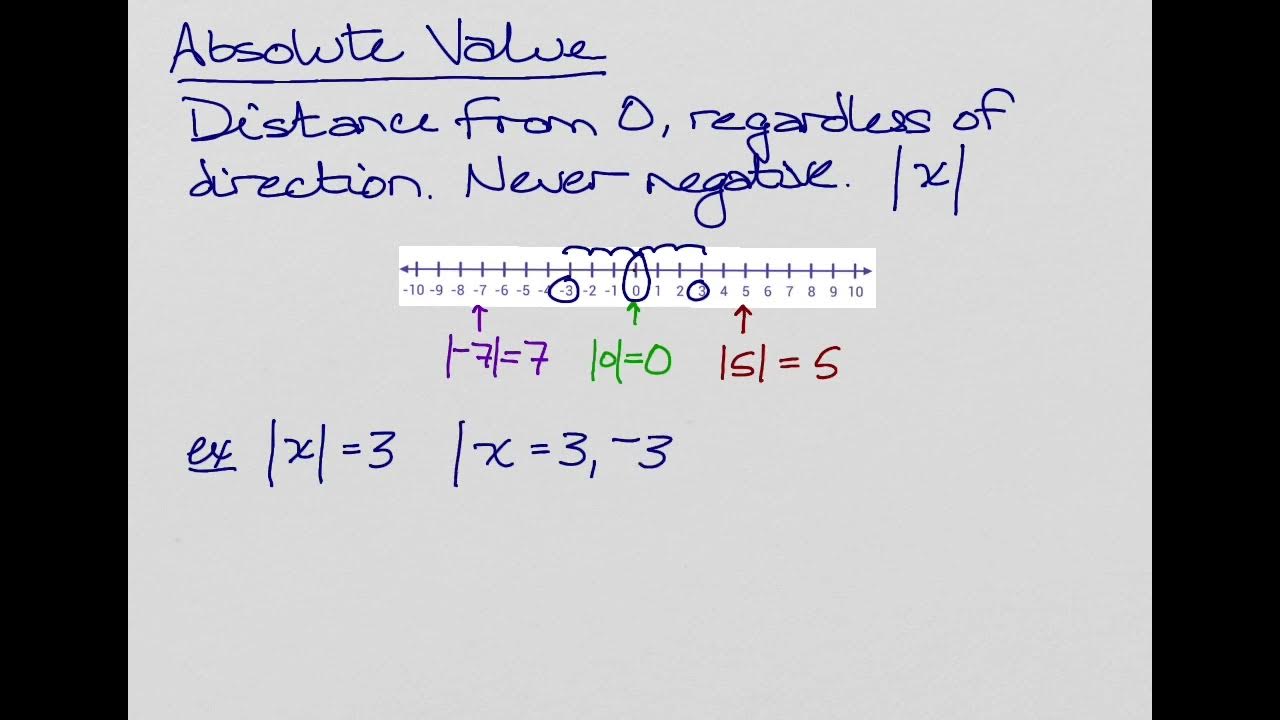 Absolute Value
Distance from 0, regardless of
direction. Never negative. |x|
-10 -9 -8 -7 -6 -5 -4 -3 -2 -1 0 1 2 3 4 5 6 7 8 9 10
|-7|=7 |0|=0 |5| = 5
ex |x| = 3 | x = 3, -3